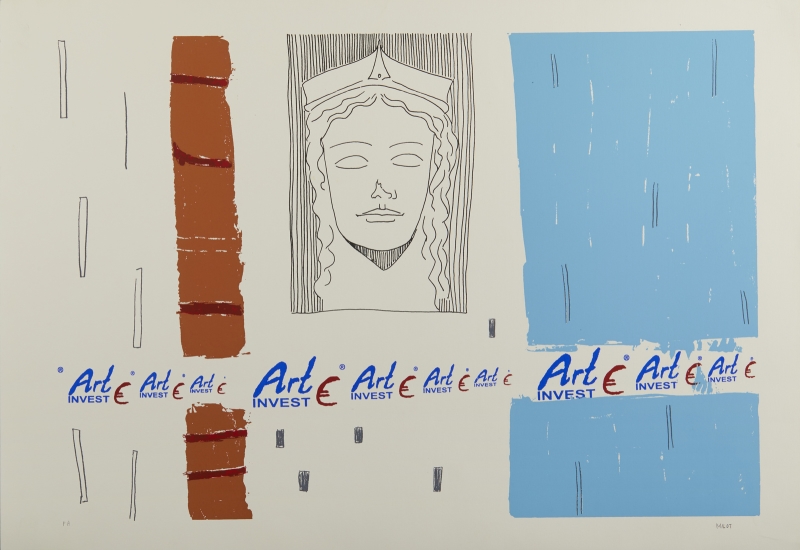 ® Art INVEST € ® Art INVEST € Art INVEST € Art INVEST € ® Art INVEST € ® Art INVEST € Art INVEST € Art INVEST € ® Art INVEST € Art INVEST €